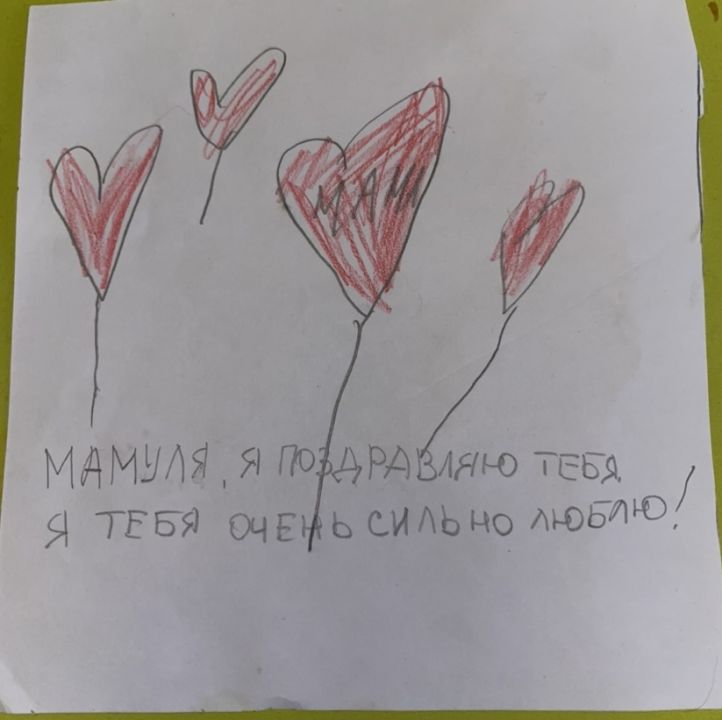 МАМИ
МАМУЛЯ, Я ПОЗДРАВЛЯЮ ТЕБЯ
Я ТЕБЯ ОЧЕНЬ СИЛЬНО ЛЮБЛЮ!